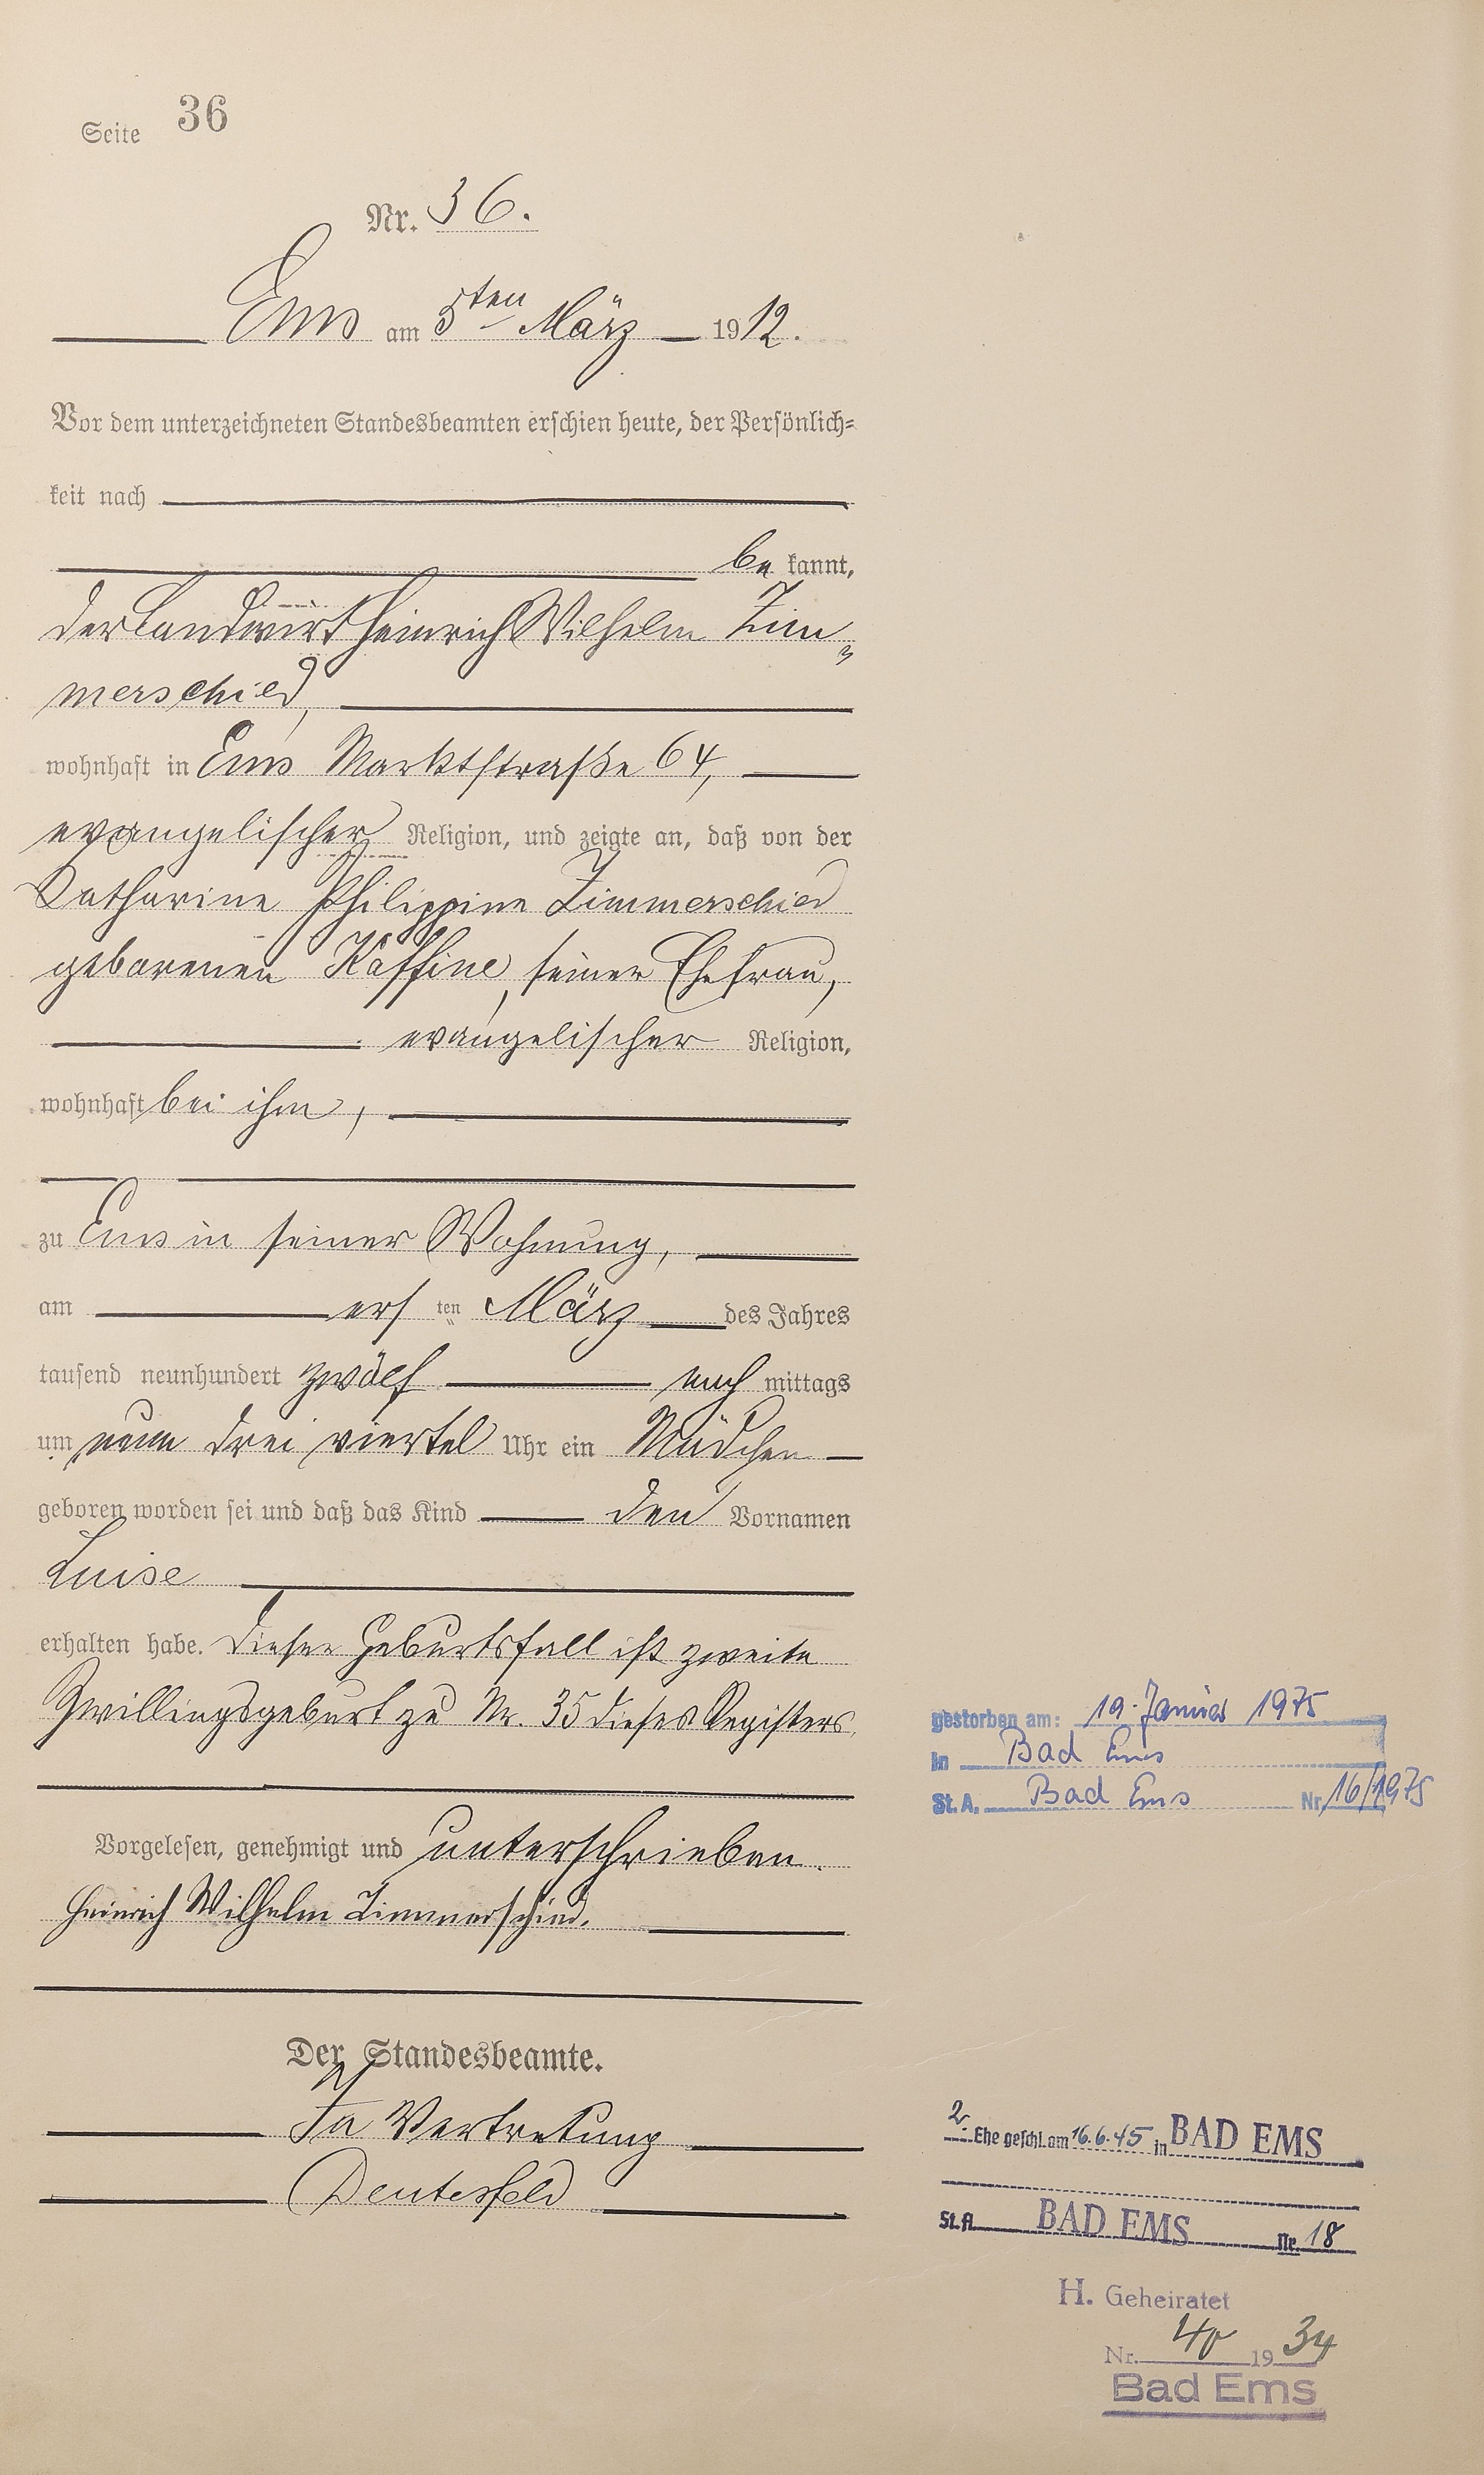 Seite 36
Nr. 36.
Ems am 5ten März 1912.
Vor dem unterzeichneten Standesbeamten erschien heute, der Persönlich-
keit nach
bekannt,
der Landwirt Heinrich Wilhelm Zim-
merschied,
wohnhaft in Ems Marktstraße 64,
evangelischer Religion, und zeigte an, daß von der
Katharine Philippine Zimmerschied
geborenen Kaffine, seiner Ehefrau,
evangelischer Religion,
wohnhaft bei ihm,
zu Ems in seiner Wohnung,
am ersten März des Jahres
tausend neunhundert zwölf nachmittags
um neun drei viertel Uhr ein Mädchen
geboren worden sei und daß das Kind den Vornamen
Luise
erhalten habe. Dieser Geburtsfall ist zweite
Zwillingsgeburt zu Nr. 35 dieses Registers.
Vorgelesen, genehmigt und unterschrieben.
Heinrich Wilhelm Zimmerschied.
Der Standesbeamte.
In Vertretung
Deutesfeld
gestorben am: 19. Januar 1975
in Bad Ems
St. A. Bad Ems Nr. 16/1975
2. Ehe geschl. am 16.6.45 in BAD EMS
St. A. BAD EMS Nr. 18
H. Geheiratet
Nr. 40 1934
Bad Ems